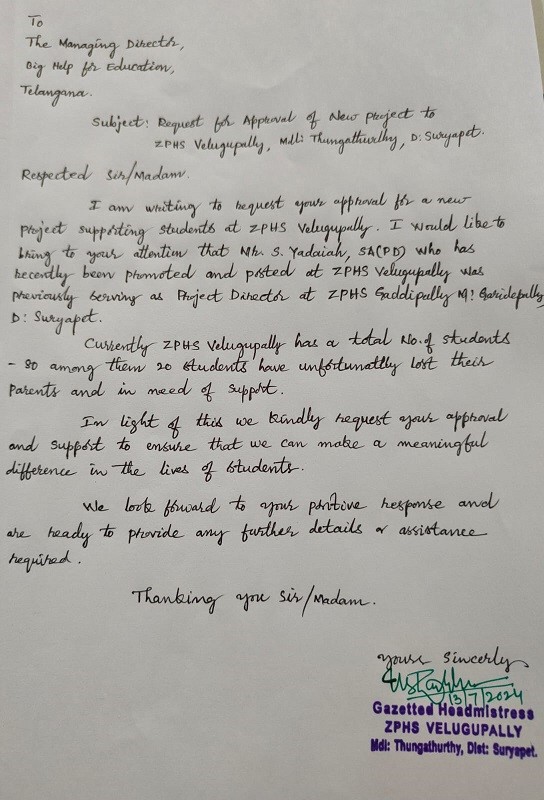 To
The Managing Director,
Big Help for Education,
Telangana.
Subject: Request for Approval of New Project to
ZPHS Velugupally, Mdl: Thungathurthy, D: Suryapet.
Respected Sir/Madam.
I am writing to request your approval for a new
project supporting students at ZPHS Velugupally. I would like to
bring to your attention that Mr. S. Yadaiah, SA(PD) who has
recently been promoted and posted at ZPHS Velugupally was
previously serving as Project Director at ZPHS Gaddipally M: Garidepally,
D: Suryapet.
Currently ZPHS Velugupally has a total No.of students
- 80 among them 20 students have unfortunattly lost their
Parents and in need of support.
In light of this we kindly request your approval
and support to ensure that we can make a meaningful
difference in the lives of students.
We look forward to your positive response and
are ready to provide any further details or assistance
required.
Thanking you Sir/Madam.
yours sincerely
13/7/2024
Gazetted Headmistress
ZPHS VELUGUPALLY
Mdl: Thungathurthy, Dist: Suryapet.